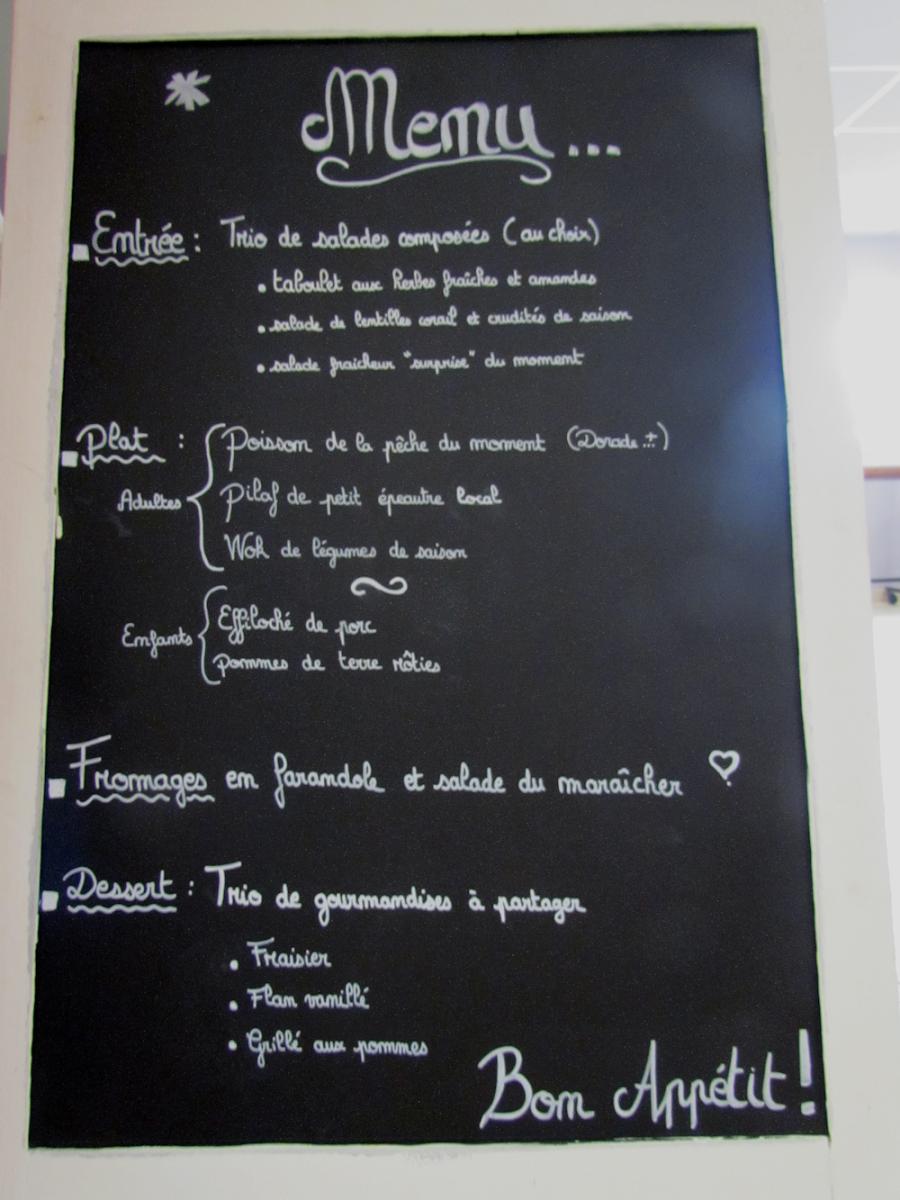 Menu...
Entrée : Trio de salades composées (au choix)
• taboulet aux herbes fraîches et amandes
• salade de lentilles corail et crudités de saison
• salade fraicheur "surprise" du moment
Plat :
Adultes
Poisson de la pêche du moment (Dorade...)
Pilaf de petit épeautre local
Wok de légumes de saison
Enfants
Effiloché de porc
pommes de terre rôties
Fromages en farandole et salade du maraîcher
Dessert : Trio de gourmandises à partager
• Fraisier
• Flan vanillé
• Grillé aux pommes
Bon Appétit !